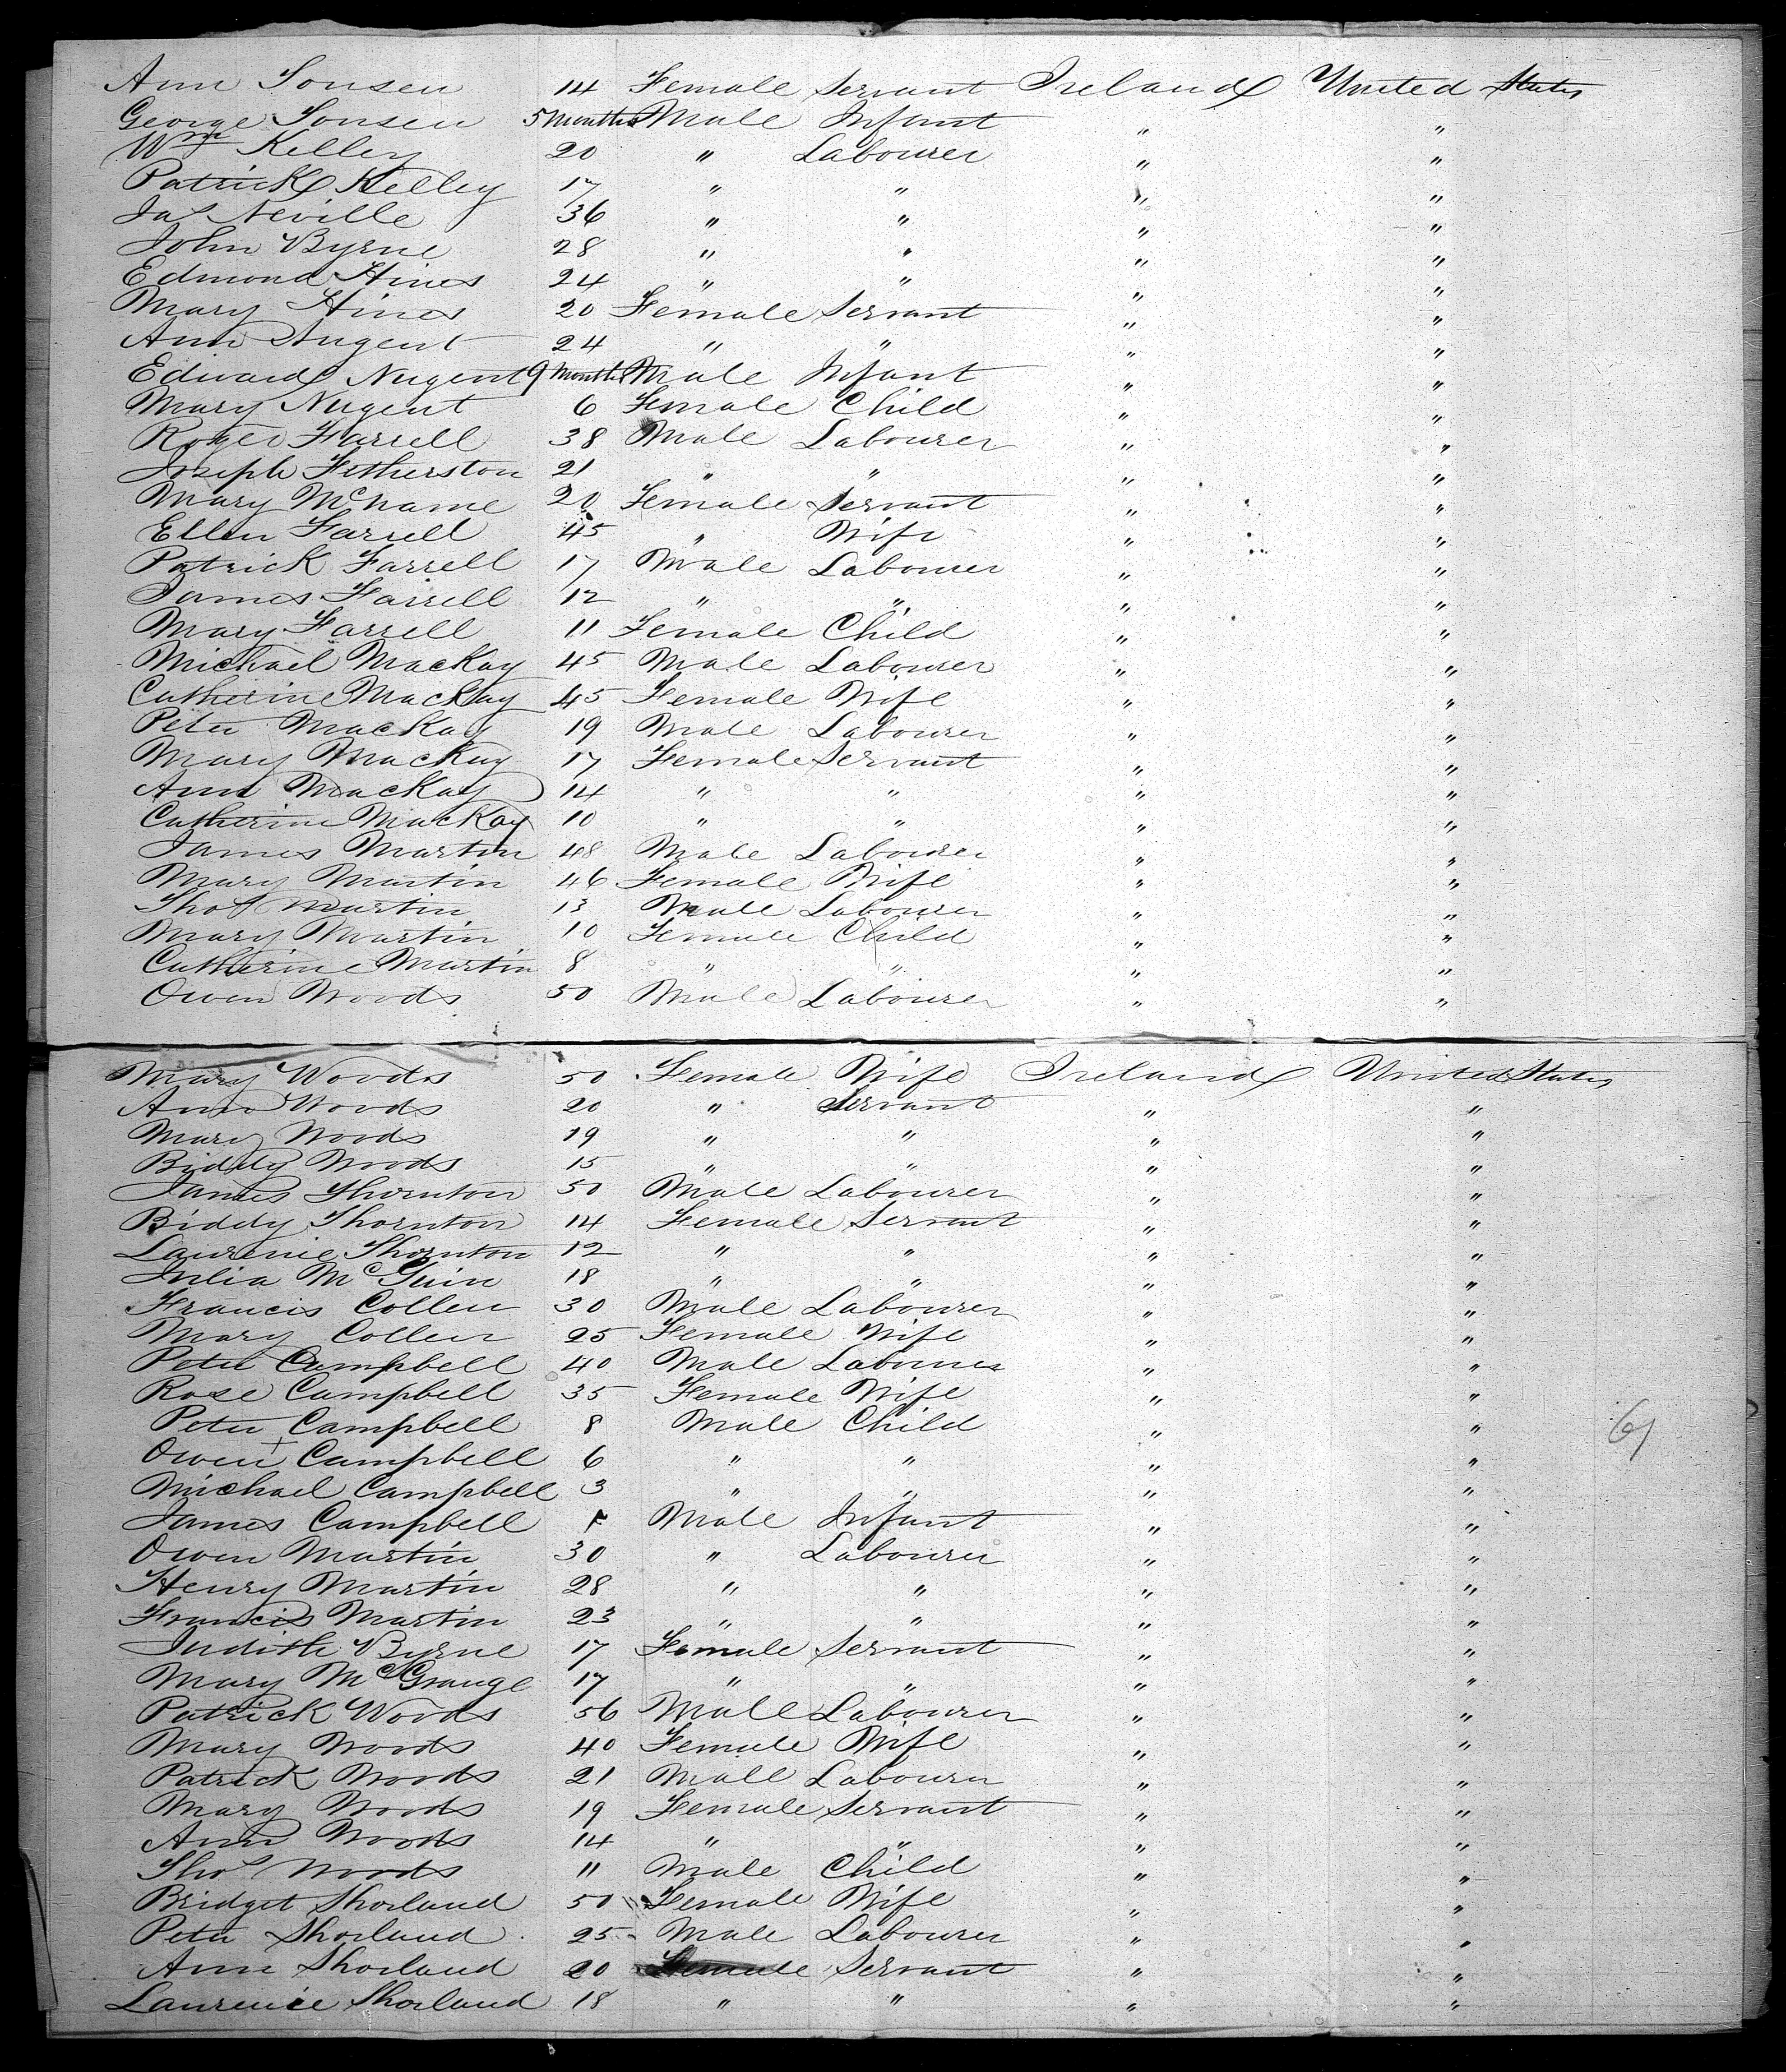 Ann Sonsen 14 Female Servant Ireland United States
George Sonsen 5 Months Male Infant " "
Wm Kelley 20 " Labourer " "
Patrick Kelley 17 " " " "
Jas Neville 36 " " " "
John Byrne 28 " " " "
Edmond Hines 24 " " " "
Mary Hines 20 Female Servant " "
Ann Nugent 24 " " " "
Edward Nugent 9 Months Male Infant " "
Mary Nugent 6 Female Child " "
Roger Farrell 38 Male Labourer " "
Joseph Fetherston 21 " " " "
Mary McName 20 Female Servant " "
Ellen Farrell 45 " Wife " "
Patrick Farrell 17 Male Labourer " "
James Farrell 12 " " " "
Mary Farrell 11 Female Child " "
Michael MacKay 45 Male Labourer " "
Catherine MacKay 45 Female Wife " "
Peter MacKay 19 Male Labourer " "
Mary MacKay 17 Female Servant " "
Ann MacKay 14 " " " "
Catherine MacKay 10 " " " "
James Martin 48 Male Labourer " "
Mary Martin 46 Female Wife " "
Thos Martin 13 Male Labourer " "
Mary Martin 10 Female Child " "
Catherine Martin 8 " " " "
Owen Woods 50 Male Labourer " "
Mary Woods 50 Female Wife Ireland United States
Ann Woods 20 " Servant " "
Mary Woods 19 " " " "
Biddy Woods 15 " " " "
James Thornton 50 Male Labourer " "
Biddy Thornton 14 Female Servant " "
Laurenie Thornton 12 " " " "
Julia McGuin 18 " " " "
Francis Collen 30 Male Labourer " "
Mary Collen 25 Female Wife " "
Peter Campbell 40 Male Labourer " "
Rose Campbell 35 Female Wife " "
Peter Campbell 8 Male Child " "
Owen Campbell 6 " " " "
Michael Campbell 3 " " " "
James Campbell Male Infant " "
Owen Martin 30 " Labourer " "
Henry Martin 28 " " " "
Francis Martin 23 " " " "
Judith Byrne 17 Female Servant " "
Mary McGrange 17 " " " "
Patrick Woods 56 Male Labourer " "
Mary Woods 40 Female Wife " "
Patrick Woods 21 Male Labourer " "
Mary Woods 19 Female Servant " "
Ann Woods 14 " " " "
Thos Woods 11 Male Child " "
Bridget Shorland 50 Female Wife " "
Peter Shorland 25 Male Labourer " "
Ann Shorland 20 Female Servant " "
Laurenie Shorland 18 " " " "
61